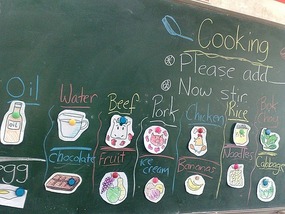 Cooking
Please add
Now stir
Oil
Water
Beef
Pork
Chicken
Rice
Bok Choy
Chocolate
Fruit
Ice cream
Bananas
Noodles
Cabbage